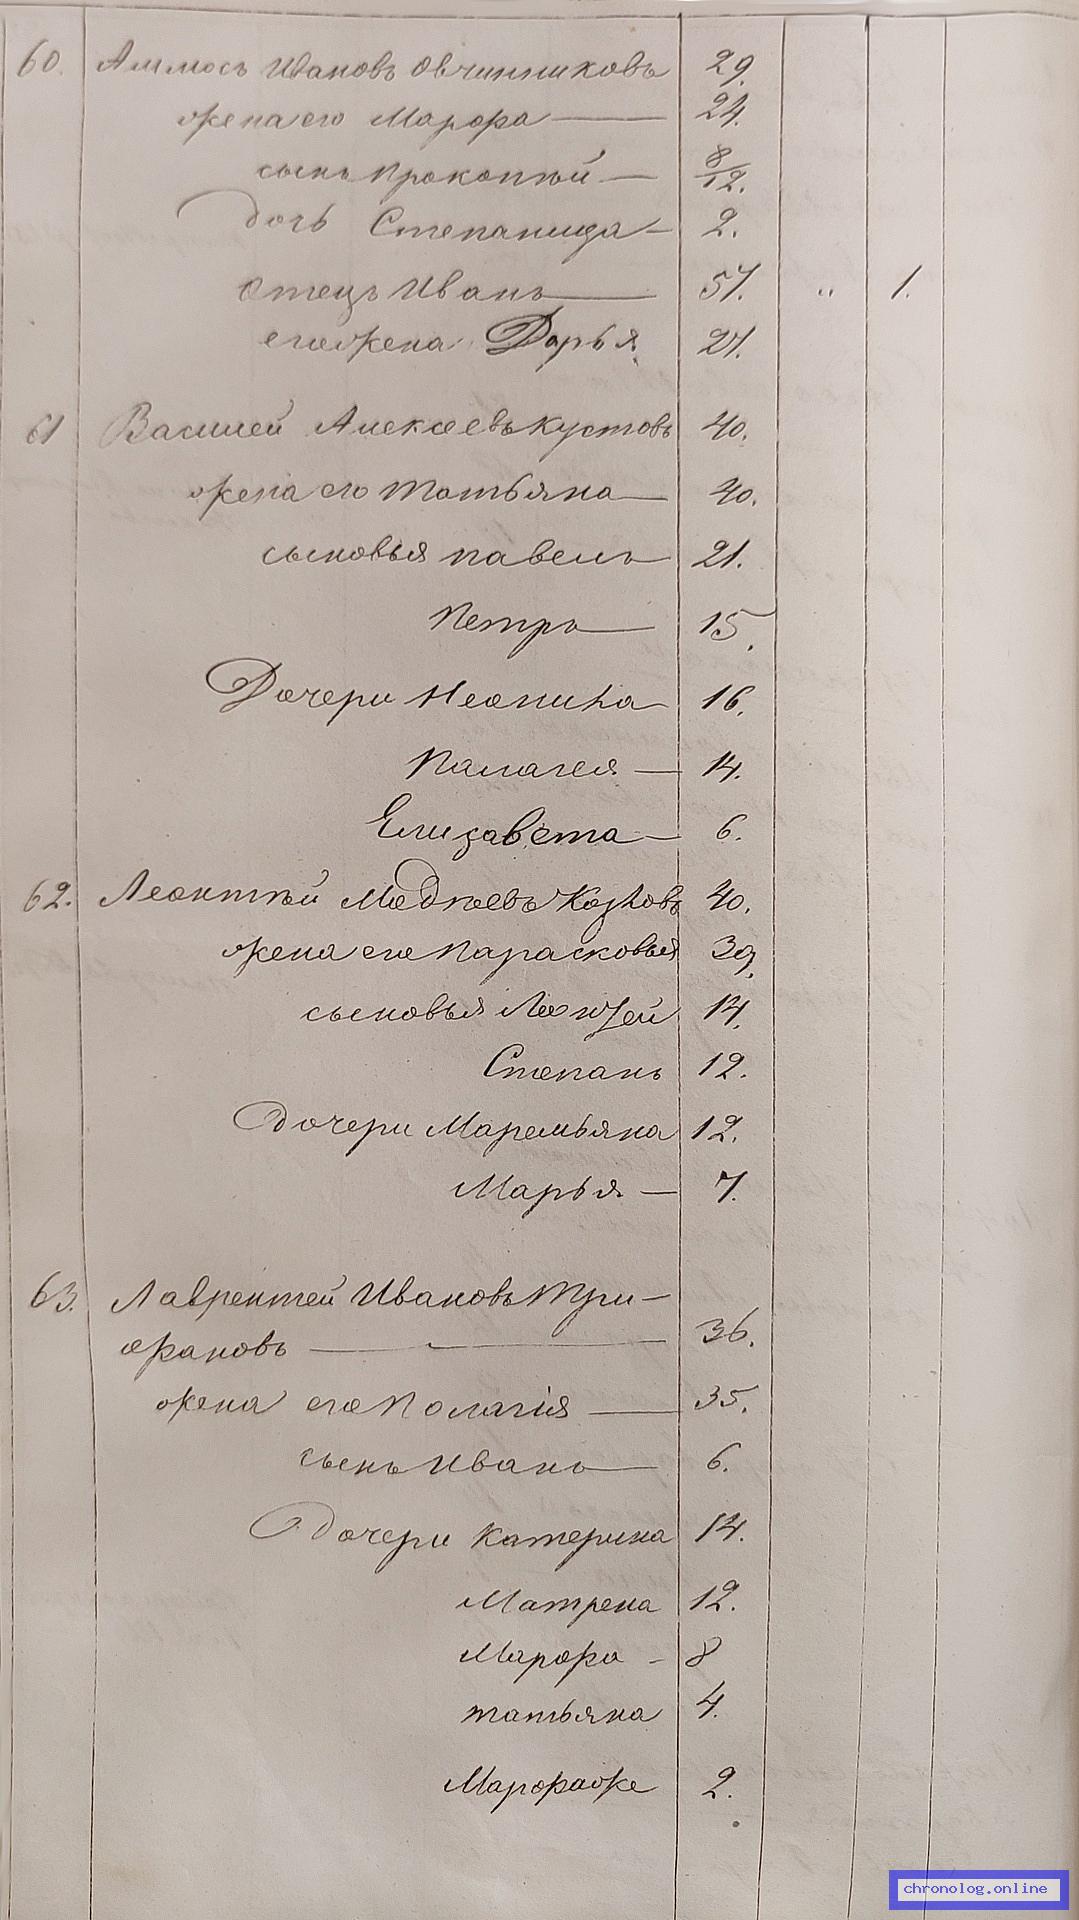 60. Аммосъ Ивановъ Овчинниковъ 29.
жена его Марфа 24.
сынъ Прокопiй 8/12.
дочь Степанида 2.
Отецъ Иванъ 57. " 1.
его жена Дарья 27.
61 Василей Алексеевъ Кустовъ 40.
жена его Татьяна 40.
сыновья Павелъ 21.
Петръ 15.
Дочери Неонила 16.
Палагея 14.
Елизавета 6.
62. Леонтiй Козловъ 40.
жена его Парасковья 39.
сыновья 14.
Степанъ 12.
дочери Маремьяна 12.
Марья 7.
63. Лаврентей Ивановъ Три-
фановъ 36.
жена его Полагiя 35.
сынъ Иванъ 6.
Дочери Катерина 14.
Матрена 12.
Марфа 8
татьяна 4.
Марфа же 2.
chronolog.online